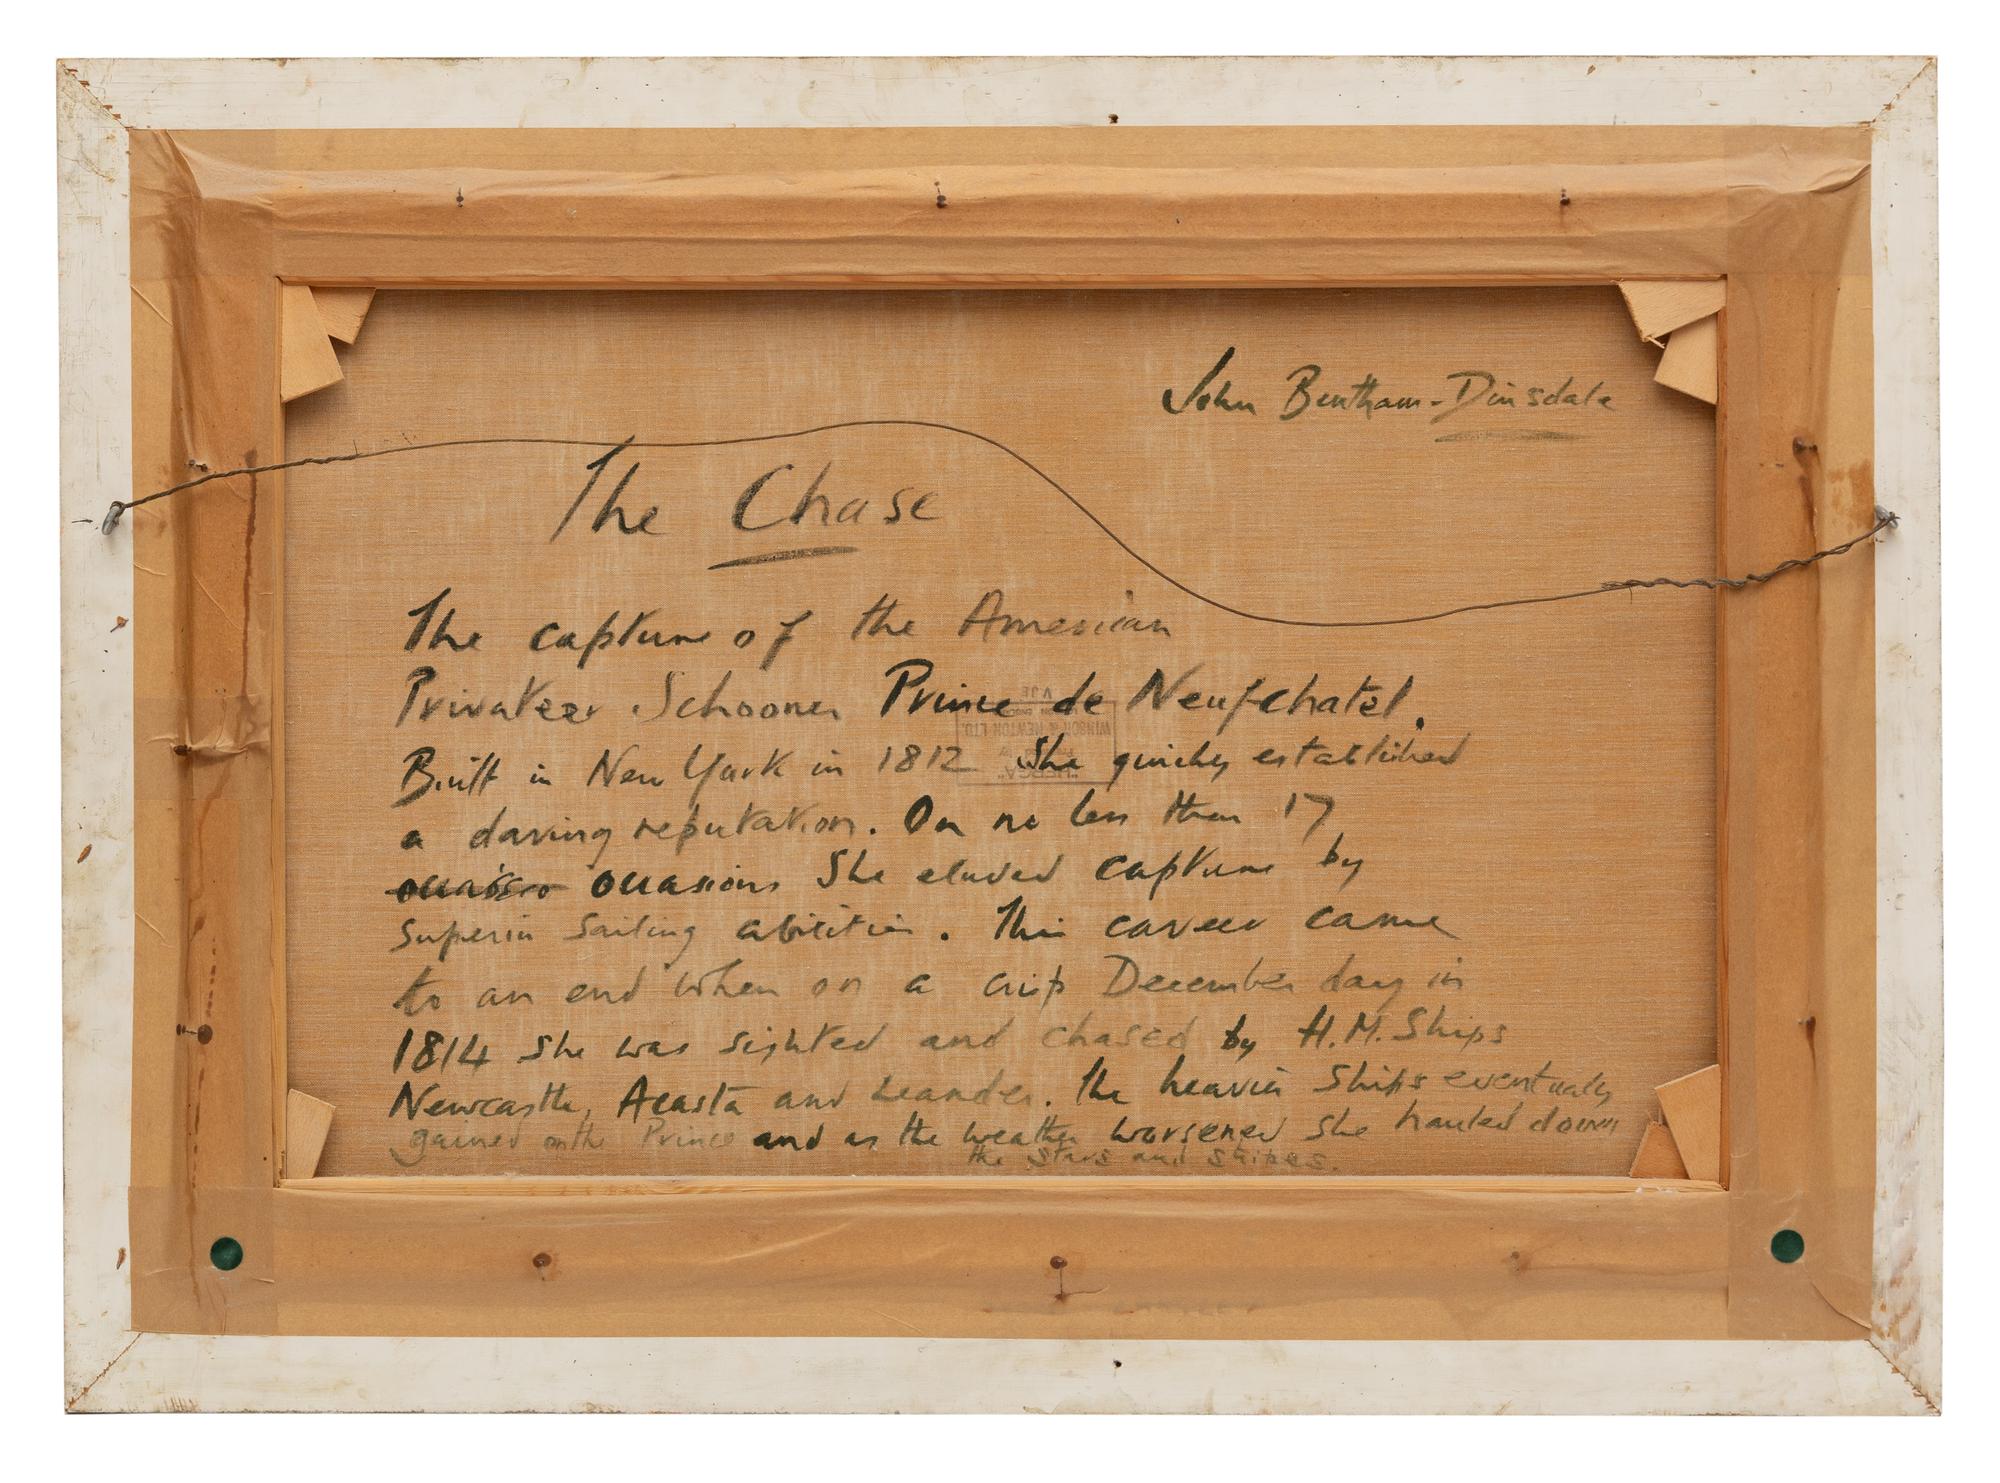 John Bentham-Dinsdale
The Chase
The capture of the American
Privateer Schooner Prince de Neufchatel.
Built in New York in 1812 She quickly established
a daring reputation. On no less than 17
occasions She eluded capture by
superior sailing abilities. This career came
to an end when on a crisp December day in
1814 she was sighted and chased by H.M. Ships
Newcastle, Acasta and Leander. The heavier ships eventually
gained on the Prince and as the weather worsened she hauled down
the stars and stripes.
WINSOR & NEWTON LTD.